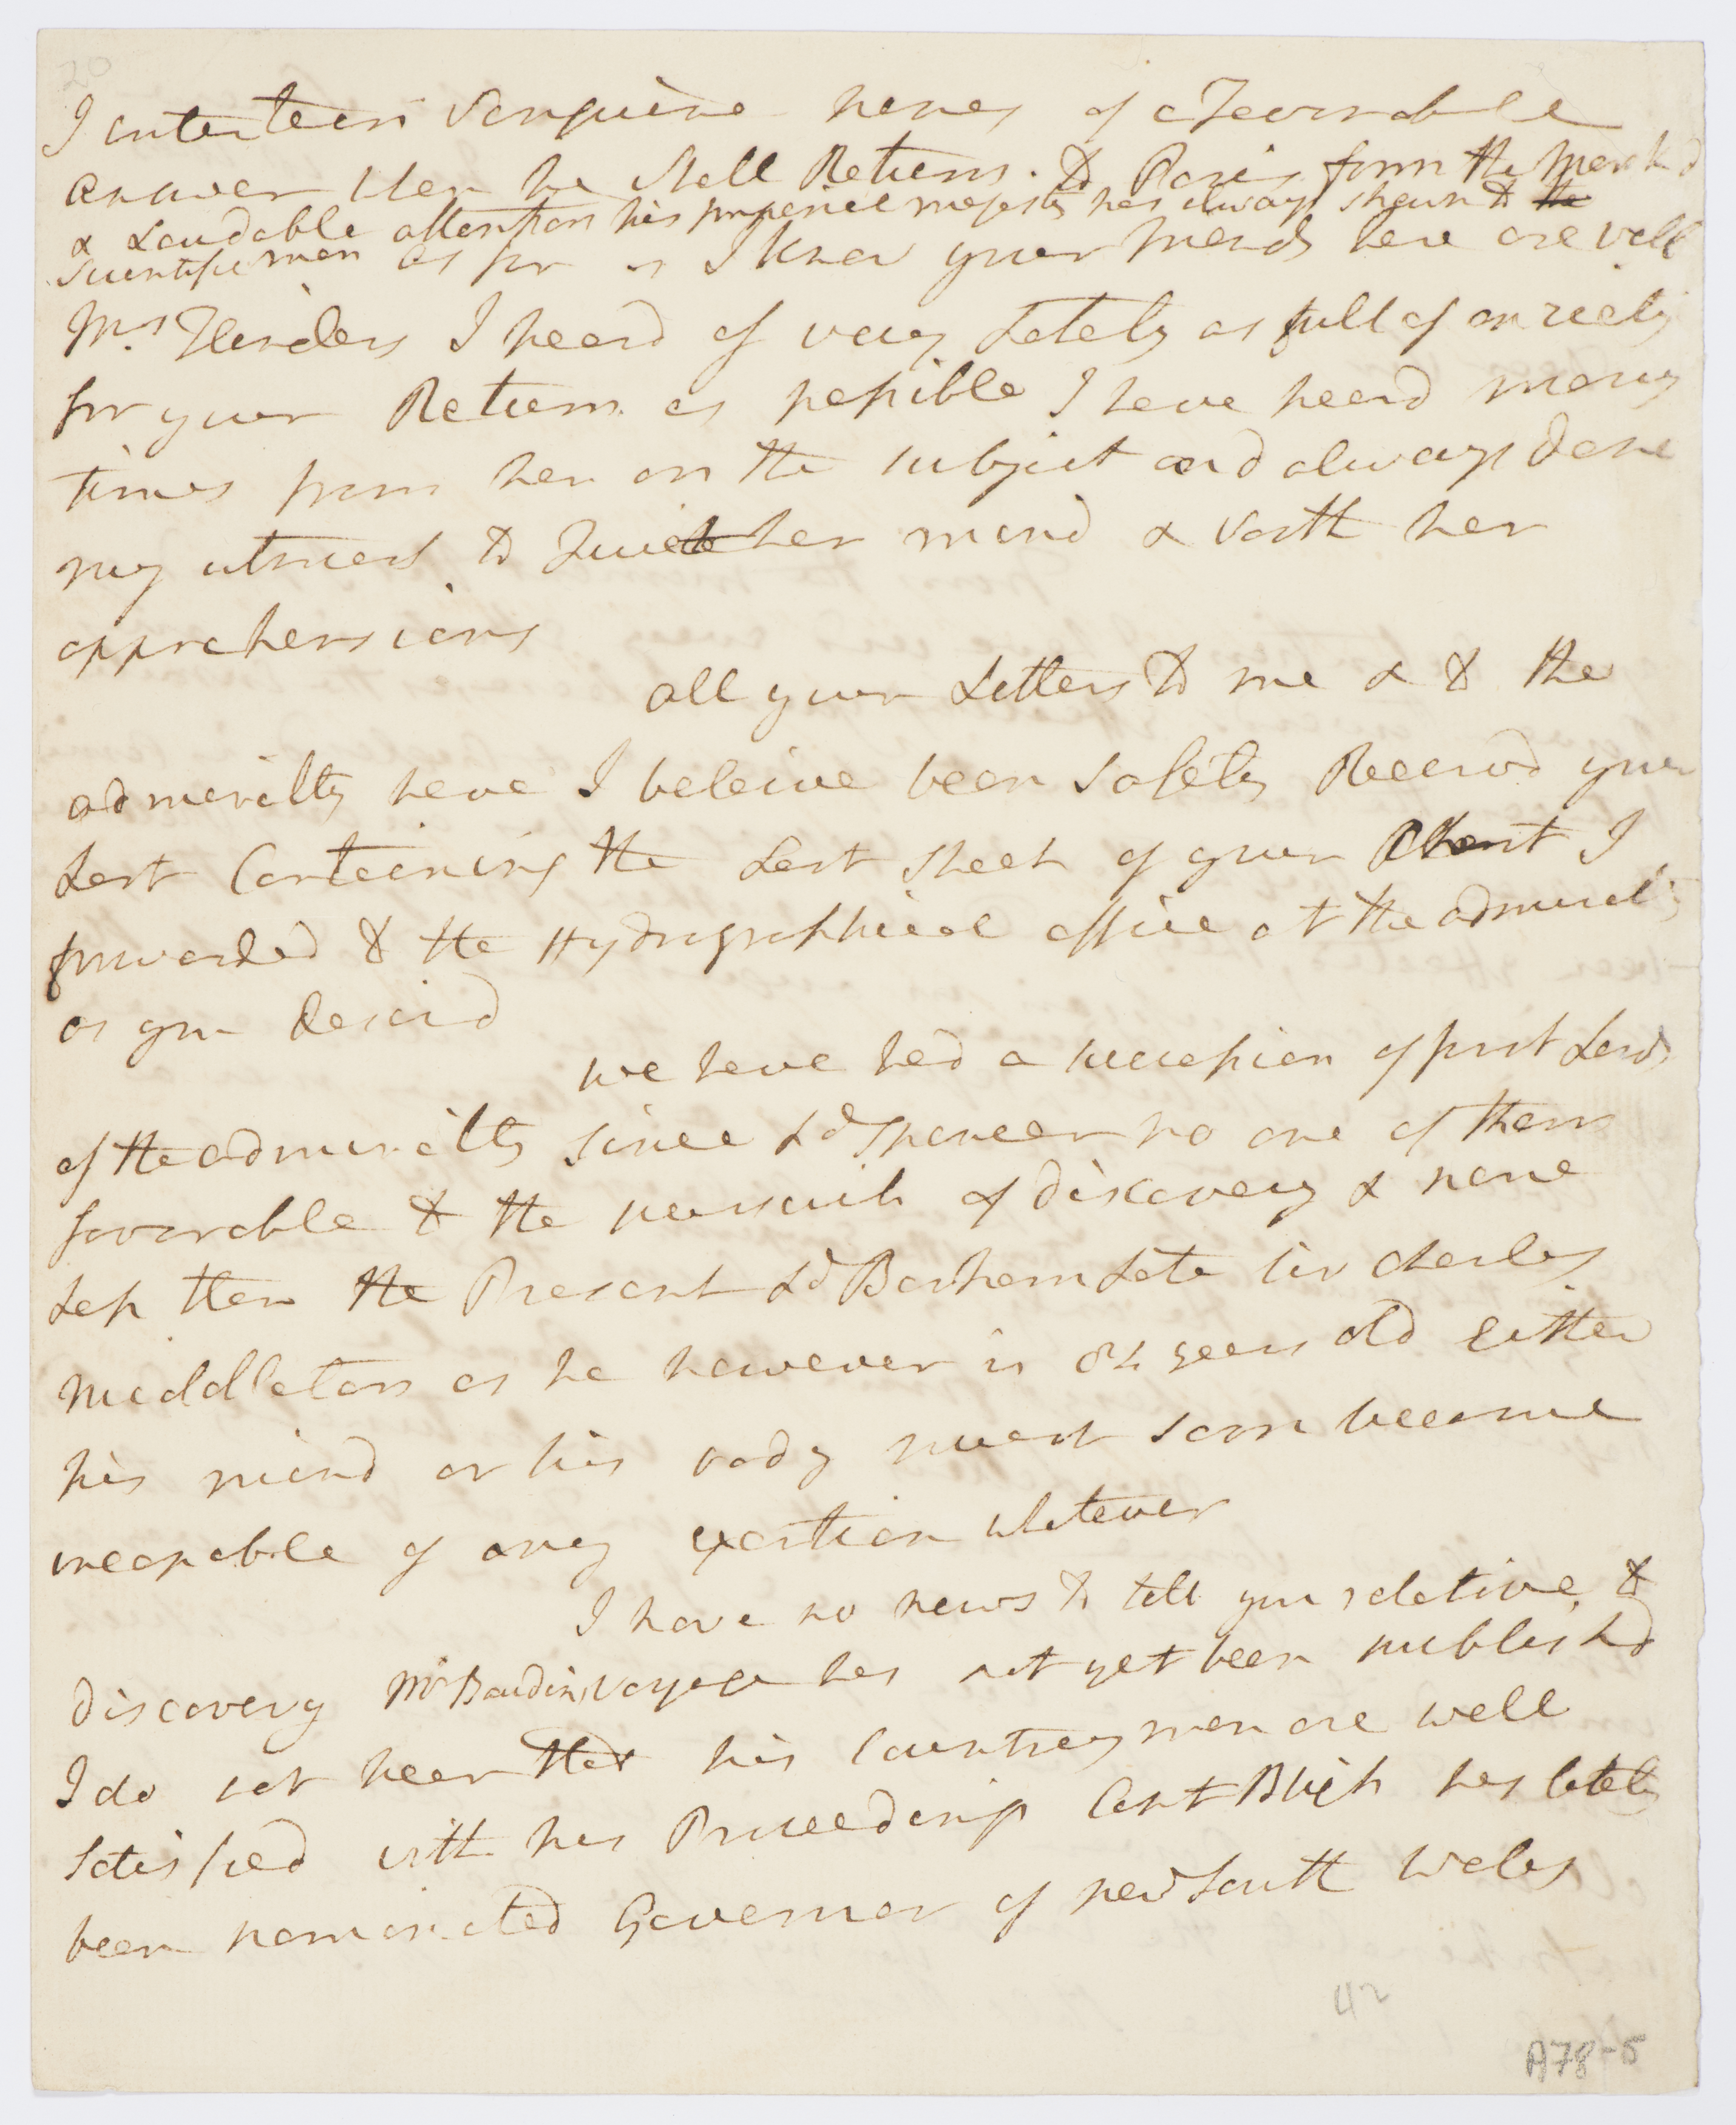 20
I entertain Sanguine hopes of a Favorable
answer when he shall Return to Paris from the Markd
& Laudable attention his imperial majesty has always shewn to the
Scientific men as far as I know your Friends here are well
Mrs Flinders I heard of very Lately as full of anxiety
for your Return as possible I have heard many
times from her on the subject and always done
my utmost to Quiet her mind & sooth her
apprehensions
all your Letters to me & to the
admiralty have I beleive been safely Receivd your
Last Containing the Last sheet of your Chart I
forwarded to the Hydrographical office at the admiralty
as you desird
we have had a succession of first Lords
of the admiralty since Ld Spencer no one of them
favorable to the pursuit of discovery & none
Less than the Present Ld Barham Late Sir Charles
Middleton as he however is 84 years old Either
his mind or his body must soon become
incapable of any exertion whatever
I have no news to tell you relative to
discovery Mr Baudins voyage has not yet been publishd
I do not hear that his Countreymen are well
Satisfied with his Proceedings Capt Bligh has lately
been nominated Governor of new South Wales
42
A78-5